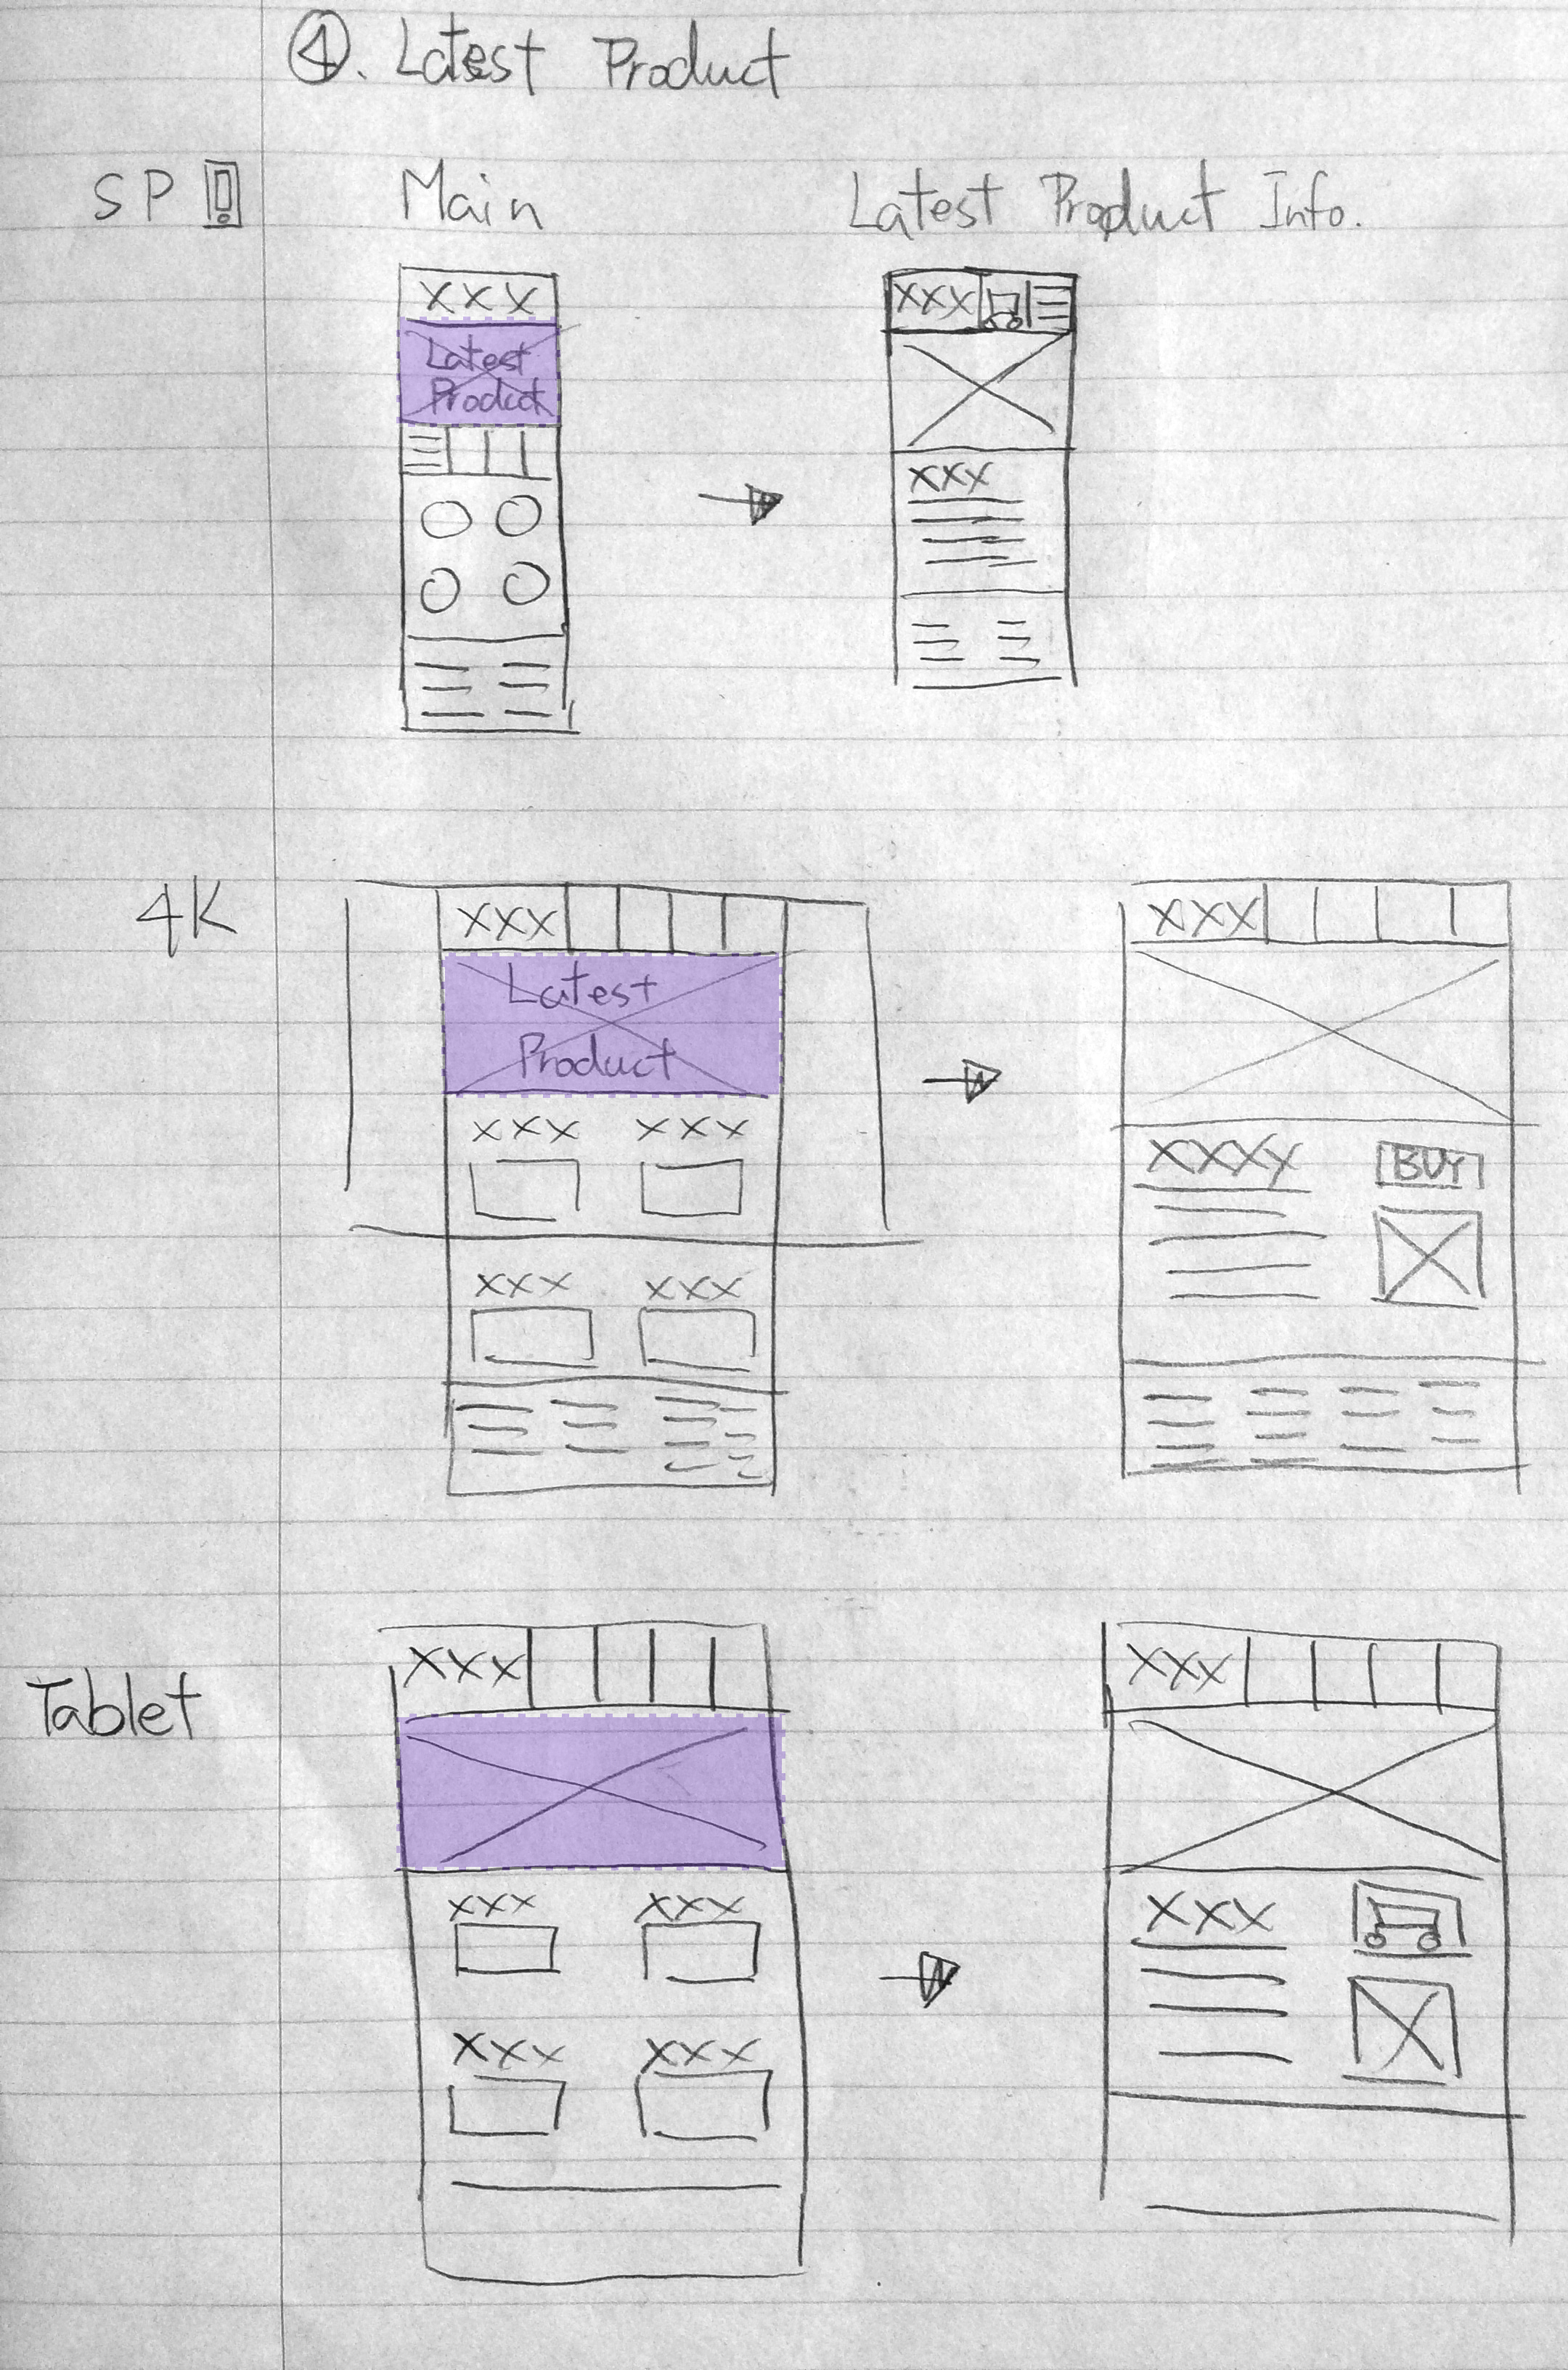 ①. Latest Product
SP Main Latest Product Info.
XXX
Latest
Product
XXX
XXX
4K
XXX
Latest
Product
XXX XXX
XXX XXX
XXX
XXXX BUY
Tablet
XXX
XXX XXX
XXX XXX
XXX
XXX